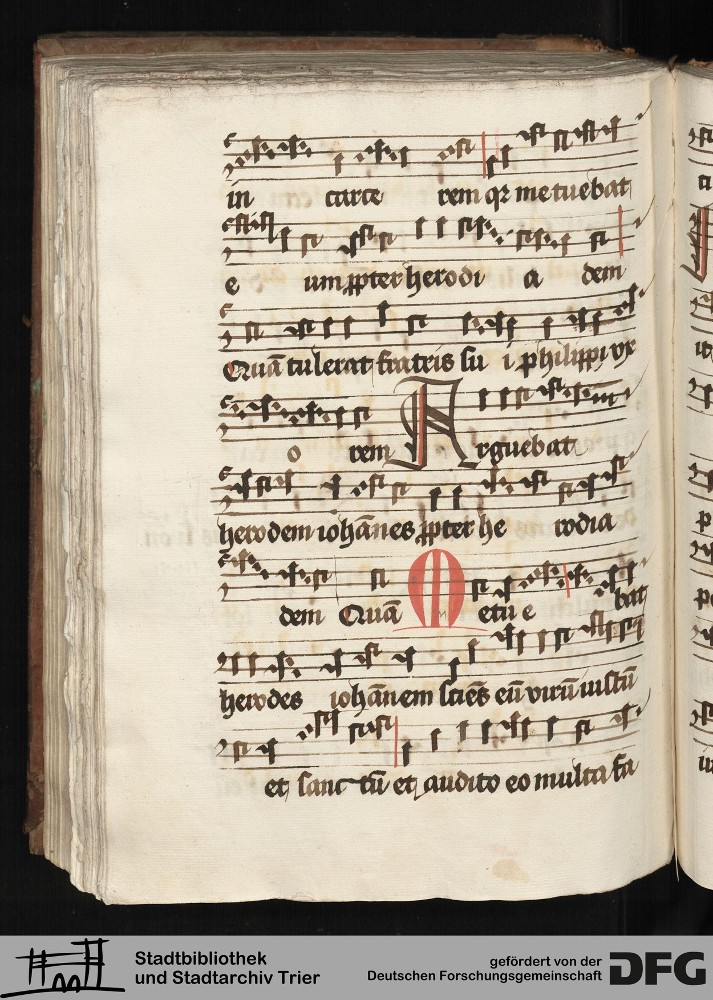 in carce rem qꝛ metuebat
e um ꝓpter herodi a dem
Quā tulerat fratris su i philippi vx
o rem Arguebat
herodem iohānes ꝓpter he rodia
dem Quā Metu e bat
herodes iohānem sciēs eū virū iustū
et sanc tū et audito eo multa fa
Stadtbibliothek
und Stadtarchiv Trier
gefördert von der
Deutschen Forschungsgemeinschaft
DFG